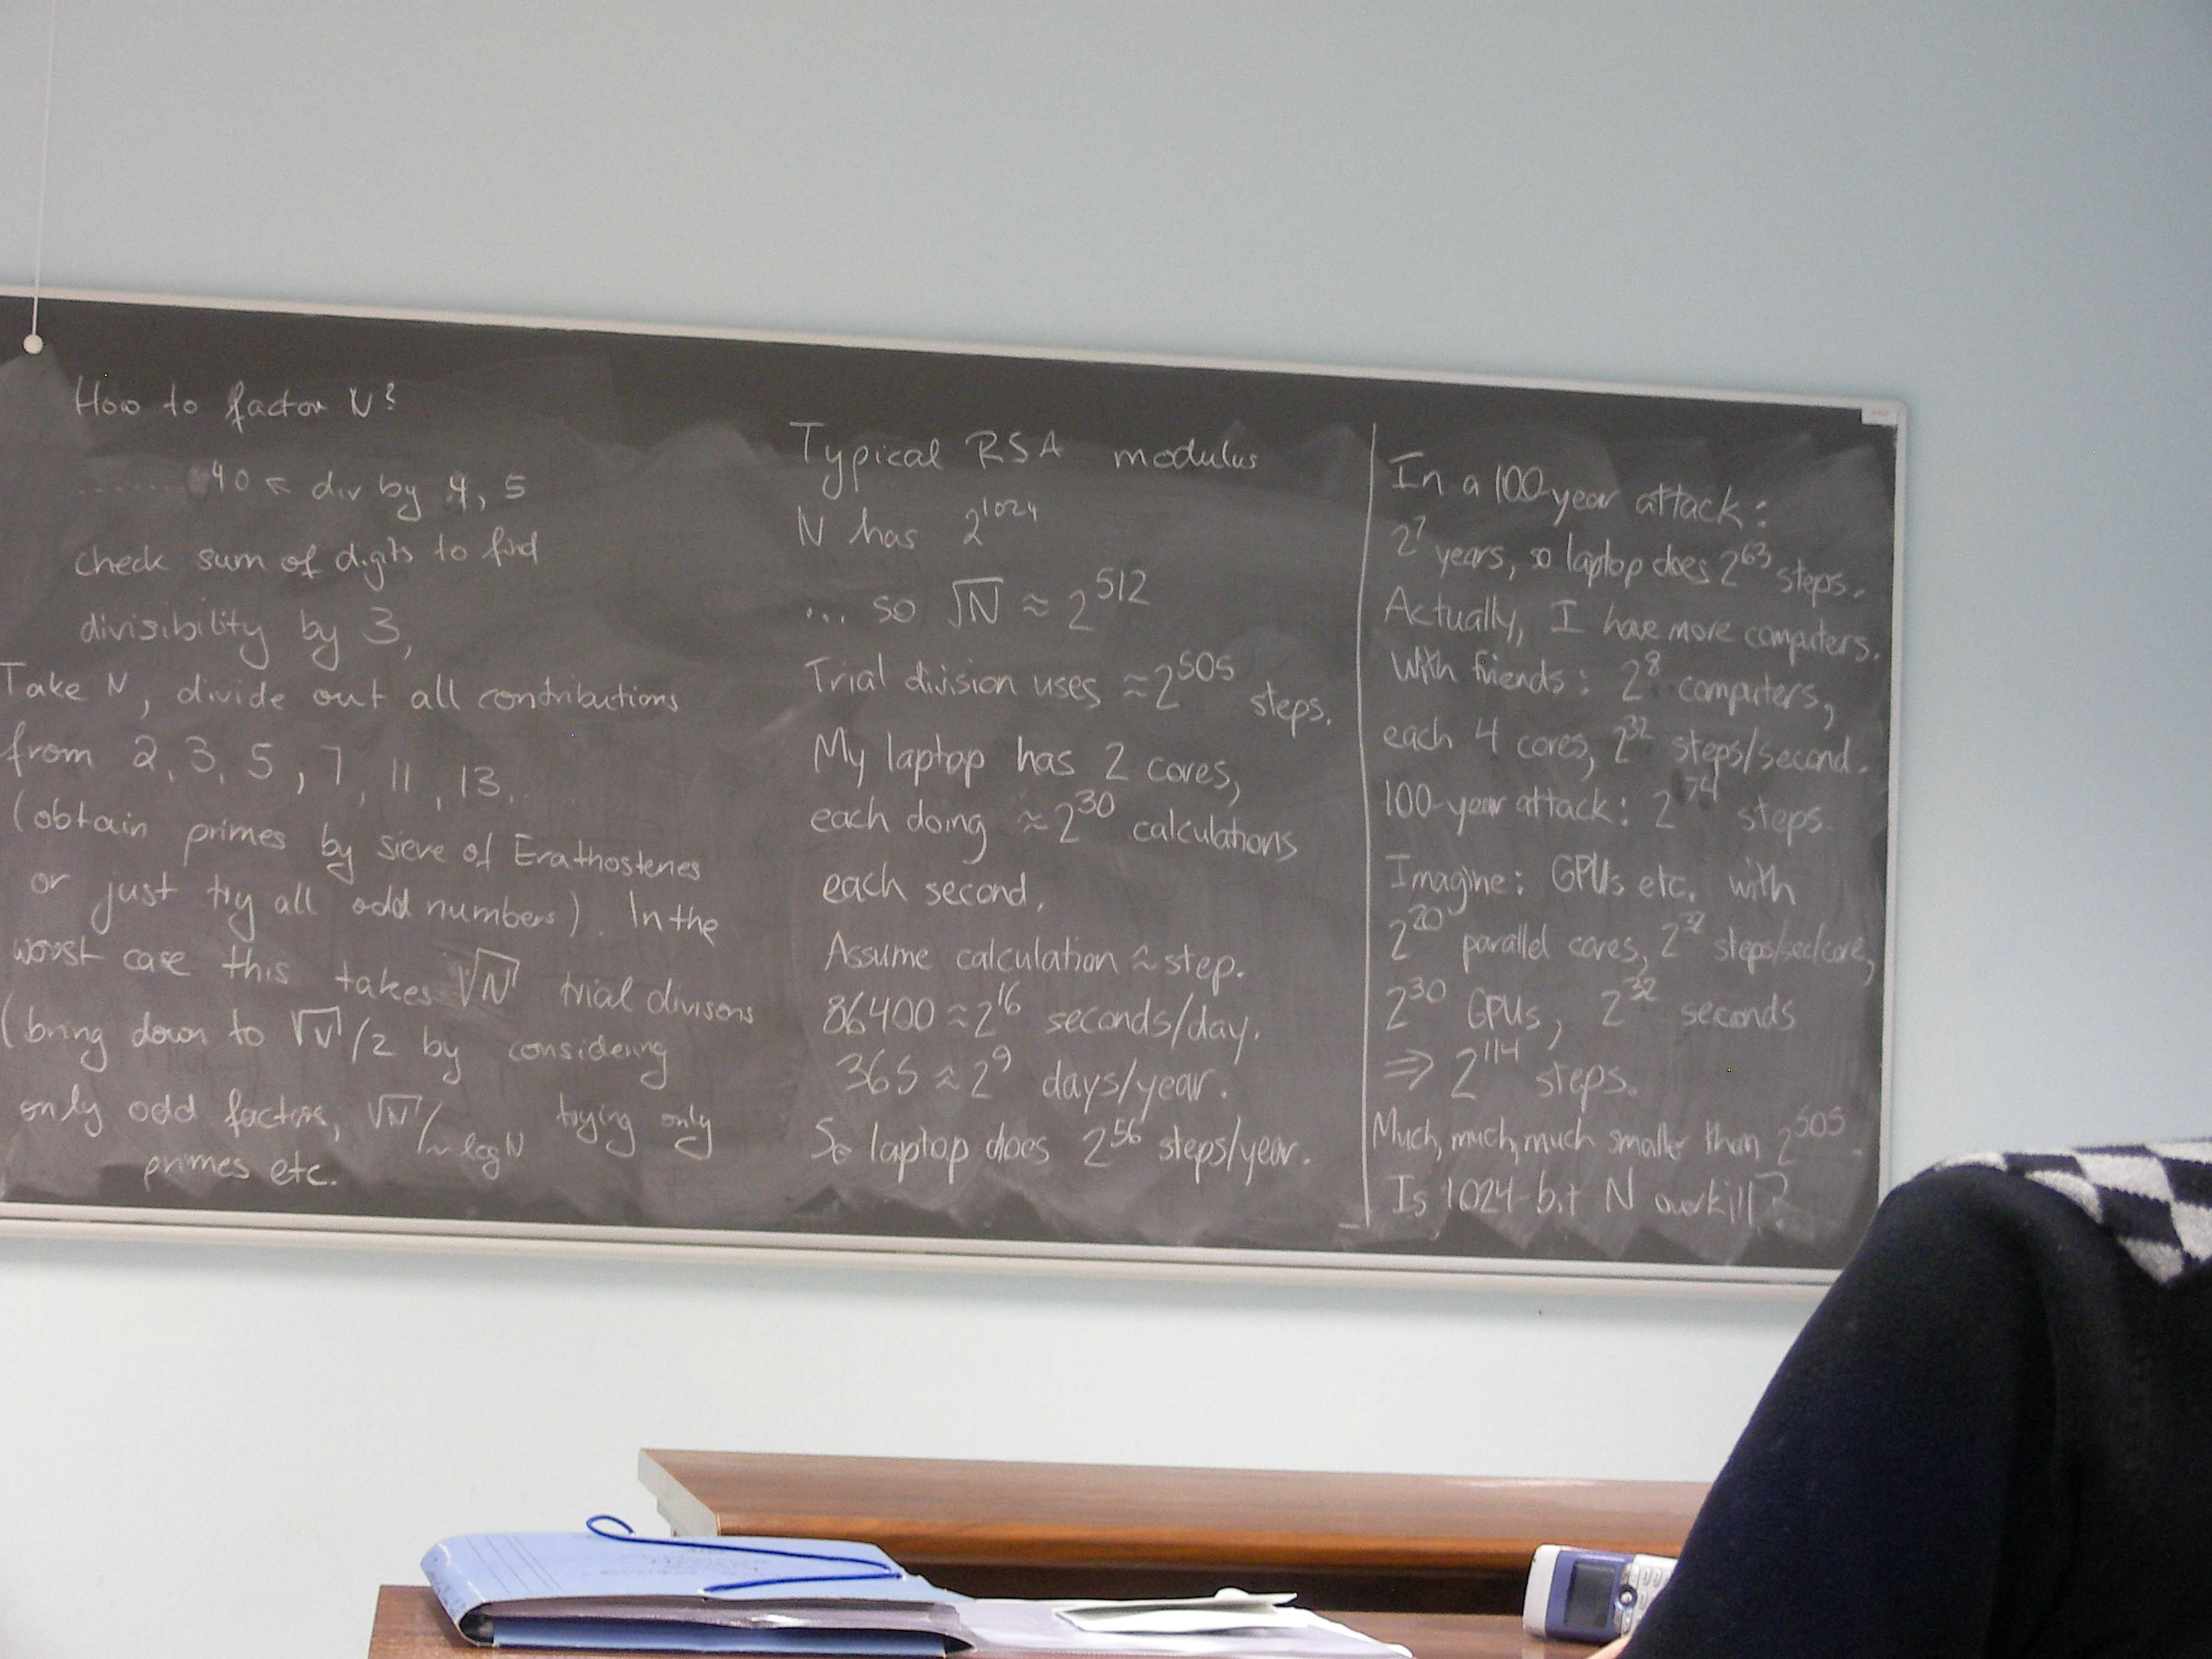 How to factor N?
........40 ← div by 4, 5
check sum of digits to find
divisibility by 3,
Take N, divide out all contributions
from 2, 3, 5, 7, 11, 13, ....
(obtain primes by sieve of Erathostenes
or just try all odd numbers). In the
worst case this takes √N trial divisons
(bring down to √N/2 by considering
only odd factors, √N/~log N trying only
primes etc.
Typical RSA modulus
N has 2^1024
... so √N ≈ 2^512
Trial division uses ≈2^505 steps.
My laptop has 2 cores,
each doing ≈2^30 calculations
each second.
Assume calculation ≈ step.
86400 ≈ 2^16 seconds/day.
365 ≈ 2^9 days/year.
So laptop does 2^56 steps/year.
In a 100-year attack:
2^7 years, so laptop does 2^63 steps.
Actually, I have more computers.
With friends: 2^8 computers,
each 4 cores, 2^32 steps/second.
100-year attack: 2^74 steps.
Imagine: GPUs etc. with
2^20 parallel cores, 2^32 steps/sec/core,
2^30 GPUs, 2^32 seconds
⇒ 2^114 steps.
Much, much, much smaller than 2^505.
Is 1024-bit N overkill?